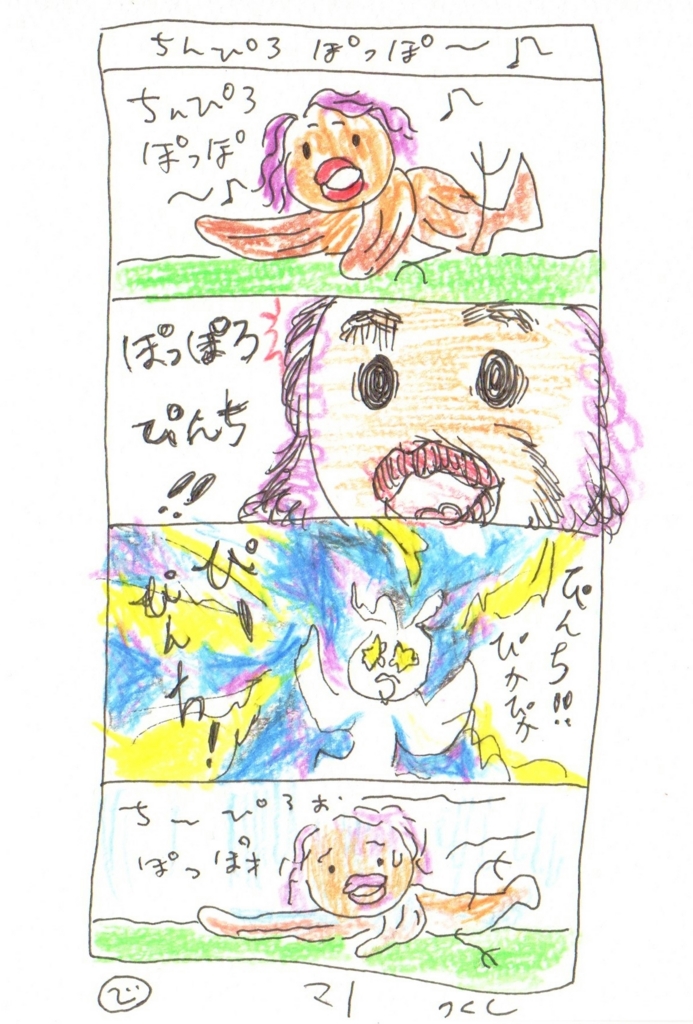 ちんぴろ ぽっぽ～♪
ちんぴろ
ぽっぽ
～♪
ぽっぽろ
ぴんち
!!
ぴんち!!
ぴかぴか
ぴー
ぴんち!
ち～ぴろぉ
ぽっぽぉ